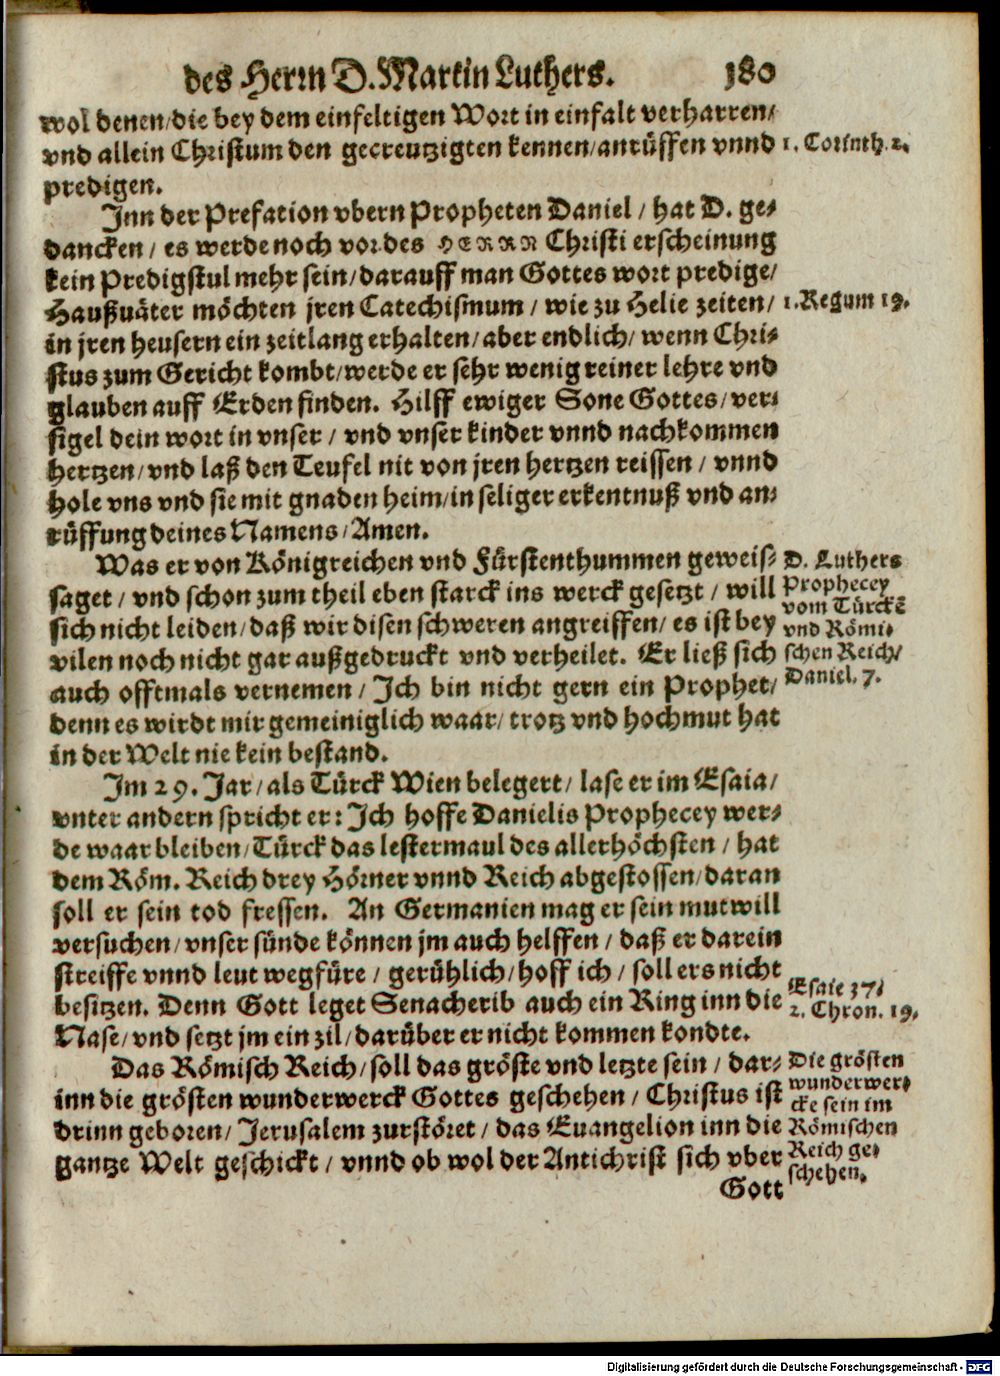 des Herrn D. Martin Luthers. 180
wol denen/die bey dem einfeltigen Wort in einfalt verharren/
vnd allein Christum den gecreutzigten kennen/anrüffen vnnd
1. Corinth. 2.
predigen.
Inn der Prefation vbern Propheten Daniel / hat D. ge-
dancken / es werde noch vor des HERRN Christi erscheinung
kein Predigstul mehr sein/darauff man Gottes wort predige/
Haußuäter möchten jren Catechismum / wie zu Helie zeiten/
1. Regum 19.
in jren heusern ein zeitlang erhalten/aber endlich/ wenn Chri-
stus zum Gericht kombt/werde er sehr wenig reiner lehre vnd
glauben auff Erden finden. Hilff ewiger Sone Gottes/ver-
sigel dein wort in vnser / vnd vnser kinder vnnd nachkommen
hertzen/vnd laß den Teufel nit von jren hertzen reissen / vnnd
hole vns vnd sie mit gnaden heim/in seliger erkentnuß vnd an-
rüffung deines Namens/Amen.
Was er von Königreichen vnd Fürstenthummen geweis-
saget / vnd schon zum theil eben starck ins werck gesetzt / will
sich nicht leiden/daß wir disen schweren angreiffen/ es ist bey
vilen noch nicht gar außgedruckt vnd verheilet. Er ließ sich
auch offtmals vernemen / Ich bin nicht gern ein Prophet/
denn es wirdt mir gemeiniglich waar/ trotz vnd hochmut hat
in der Welt nie kein bestand.
D. Luthers
Prophecey
vom Türckē
vnd Römi-
schen Reich/
Daniel. 7.
Im 29. Jar/als Türck Wien belegert/ lase er im Esaia/
vnter andern spricht er: Ich hoffe Danielis Prophecey wer-
de waar bleiben/Türck das lestermaul des allerhöchsten / hat
dem Röm. Reich drey Hörner vnnd Reich abgestossen/daran
soll er sein tod fressen. An Germanien mag er sein mutwill
versuchen/vnser sünde können jm auch helffen / daß er darein
streiffe vnnd leut wegfüre / gerühlich/hoff ich / soll ers nicht
besitzen. Denn Gott leget Senacherib auch ein Ring inn die
Nase/vnd setzt jm ein zil/darüber er nicht kommen kondte.
Esaie 37/
2. Chron. 19.
Das Römisch Reich/soll das gröste vnd letzte sein / dar-
inn die grösten wunderwerck Gottes geschehen / Christus ist
drinn geboren/ Jerusalem zurstöret / das Euangelion inn die
gantze Welt geschickt / vnnd ob wol der Antichrist sich vber
Die grösten
wunderwer-
cke sein im
Römischen
Reich ge-
schehen.
Gott
Digitalisierung gefördert durch die Deutsche Forschungsgemeinschaft - DFG